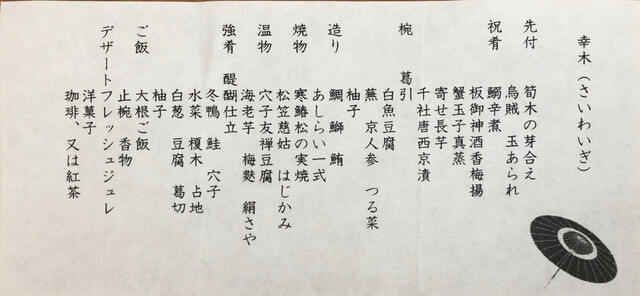 幸木（さいわいぎ）
先付 筍木の芽合え
烏賊 玉あられ
祝肴 鰯辛煮
板御神酒香梅揚
蟹玉子真蒸
寄せ長芋
千社唐西京漬
椀 葛引
白魚豆腐
蕪 京人参 つる菜
柚子
造り 鯛 鰤 鮪
あしらい一式
焼物 寒鰆松の実焼
松笠慈姑 はじかみ
温物 穴子友禅豆腐
海老芋 梅麩 絹さや
強肴 醍醐仕立
冬鴨 鮭 穴子
水菜 榎木 占地
白葱 豆腐 葛切
柚子
ご飯 大根ご飯
止椀 香物
デザート フレッシュジュレ
洋菓子
珈琲、又は紅茶